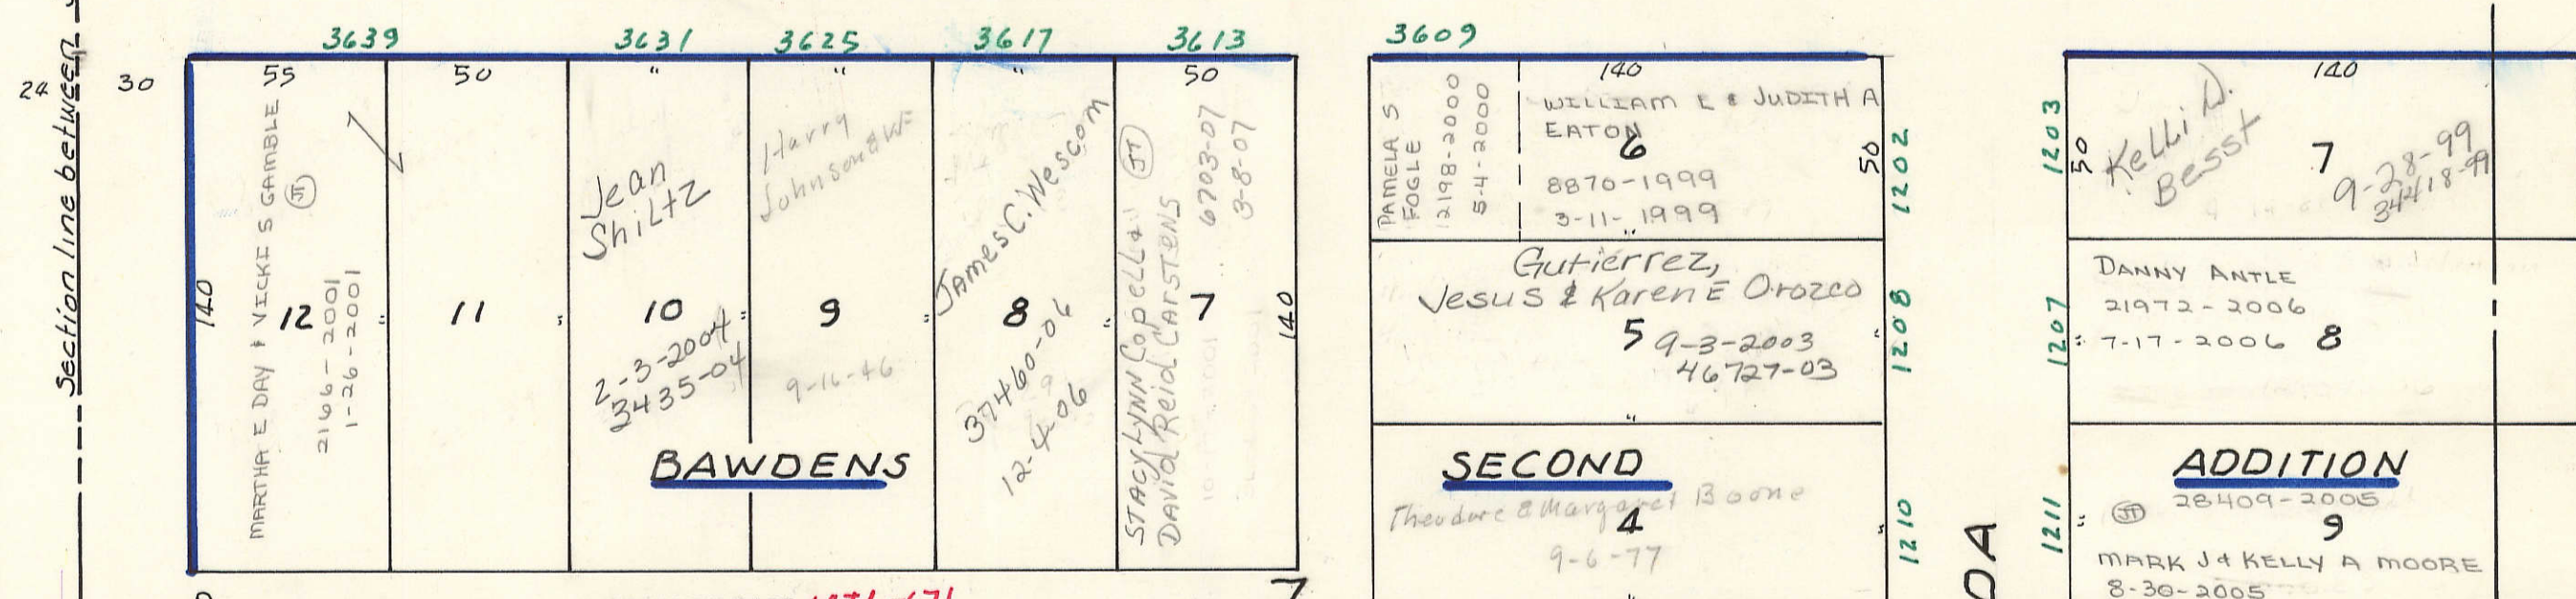 3639
3631
3625
3617
3613
3609
24
30
Section line between
55
50
"
"
"
50
140
140
MARTHA E DAY & VICKI S GAMBLE
JT
2166-2001
1-26-2001
12
"
11
"
Jean
Shiltz
10
"
2-3-2004
3435-04
Harry
Johnson & Wf
9
"
9-16-46
James C. Wescom
8
"
37460-06
12-4-06
STACY LYNN Copella &
David Reid CARSTENS
JT
6703-07
3-8-07
7
140
BAWDENS
7
PAMELA S
FOGLE
12198-2000
5-4-2000
140
WILLIAM L & JUDITH A
EATON
6
8870-1999
3-11-1999
50
1202
"
Gutierrez,
Jesus & Karen E Orozco
5
9-3-2003
46727-03
"
1208
"
SECOND
Theodore & Margaret Boone
4
9-6-77
"
1210
OA
1203
50
140
Kelli D.
Besst
7
9-28-99
34418-99
1207
DANNY ANTLE
21972-2006
" 7-17-2006
8
ADDITION
1211
"
JT
28409-2005
9
MARK J & KELLY A MOORE
8-30-2005